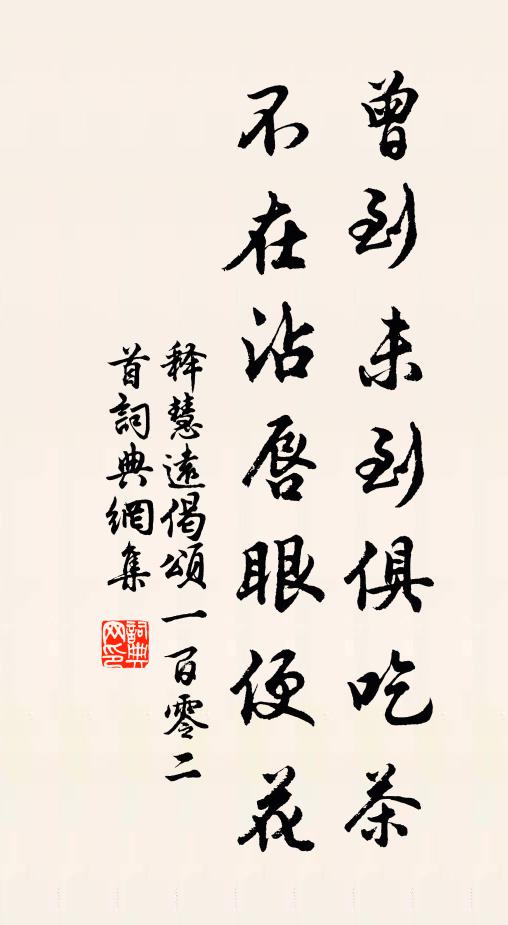 曾到未到俱吃茶
不在沾唇眼便花
释慧遠偈頌一百零二
首詞典網集
詞典网印